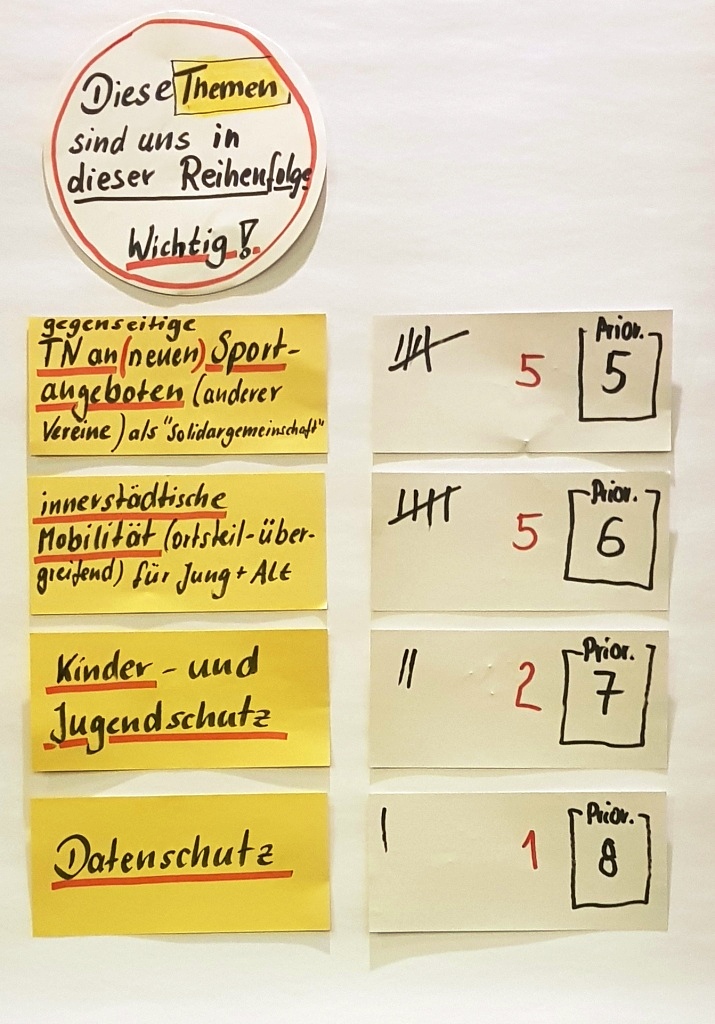 Diese Themen
sind uns in
dieser Reihenfolge
Wichtig!
gegenseitige
TN an (neuen) Sport-
angeboten (anderer
Vereine) als "Solidargemeinschaft"
5
Prior.
5
innerstädtische
Mobilität (ortsteil-über-
greifend) für Jung + Alt
5
Prior.
6
Kinder- und
Jugendschutz
2
Prior.
7
Datenschutz
1
Prior.
8